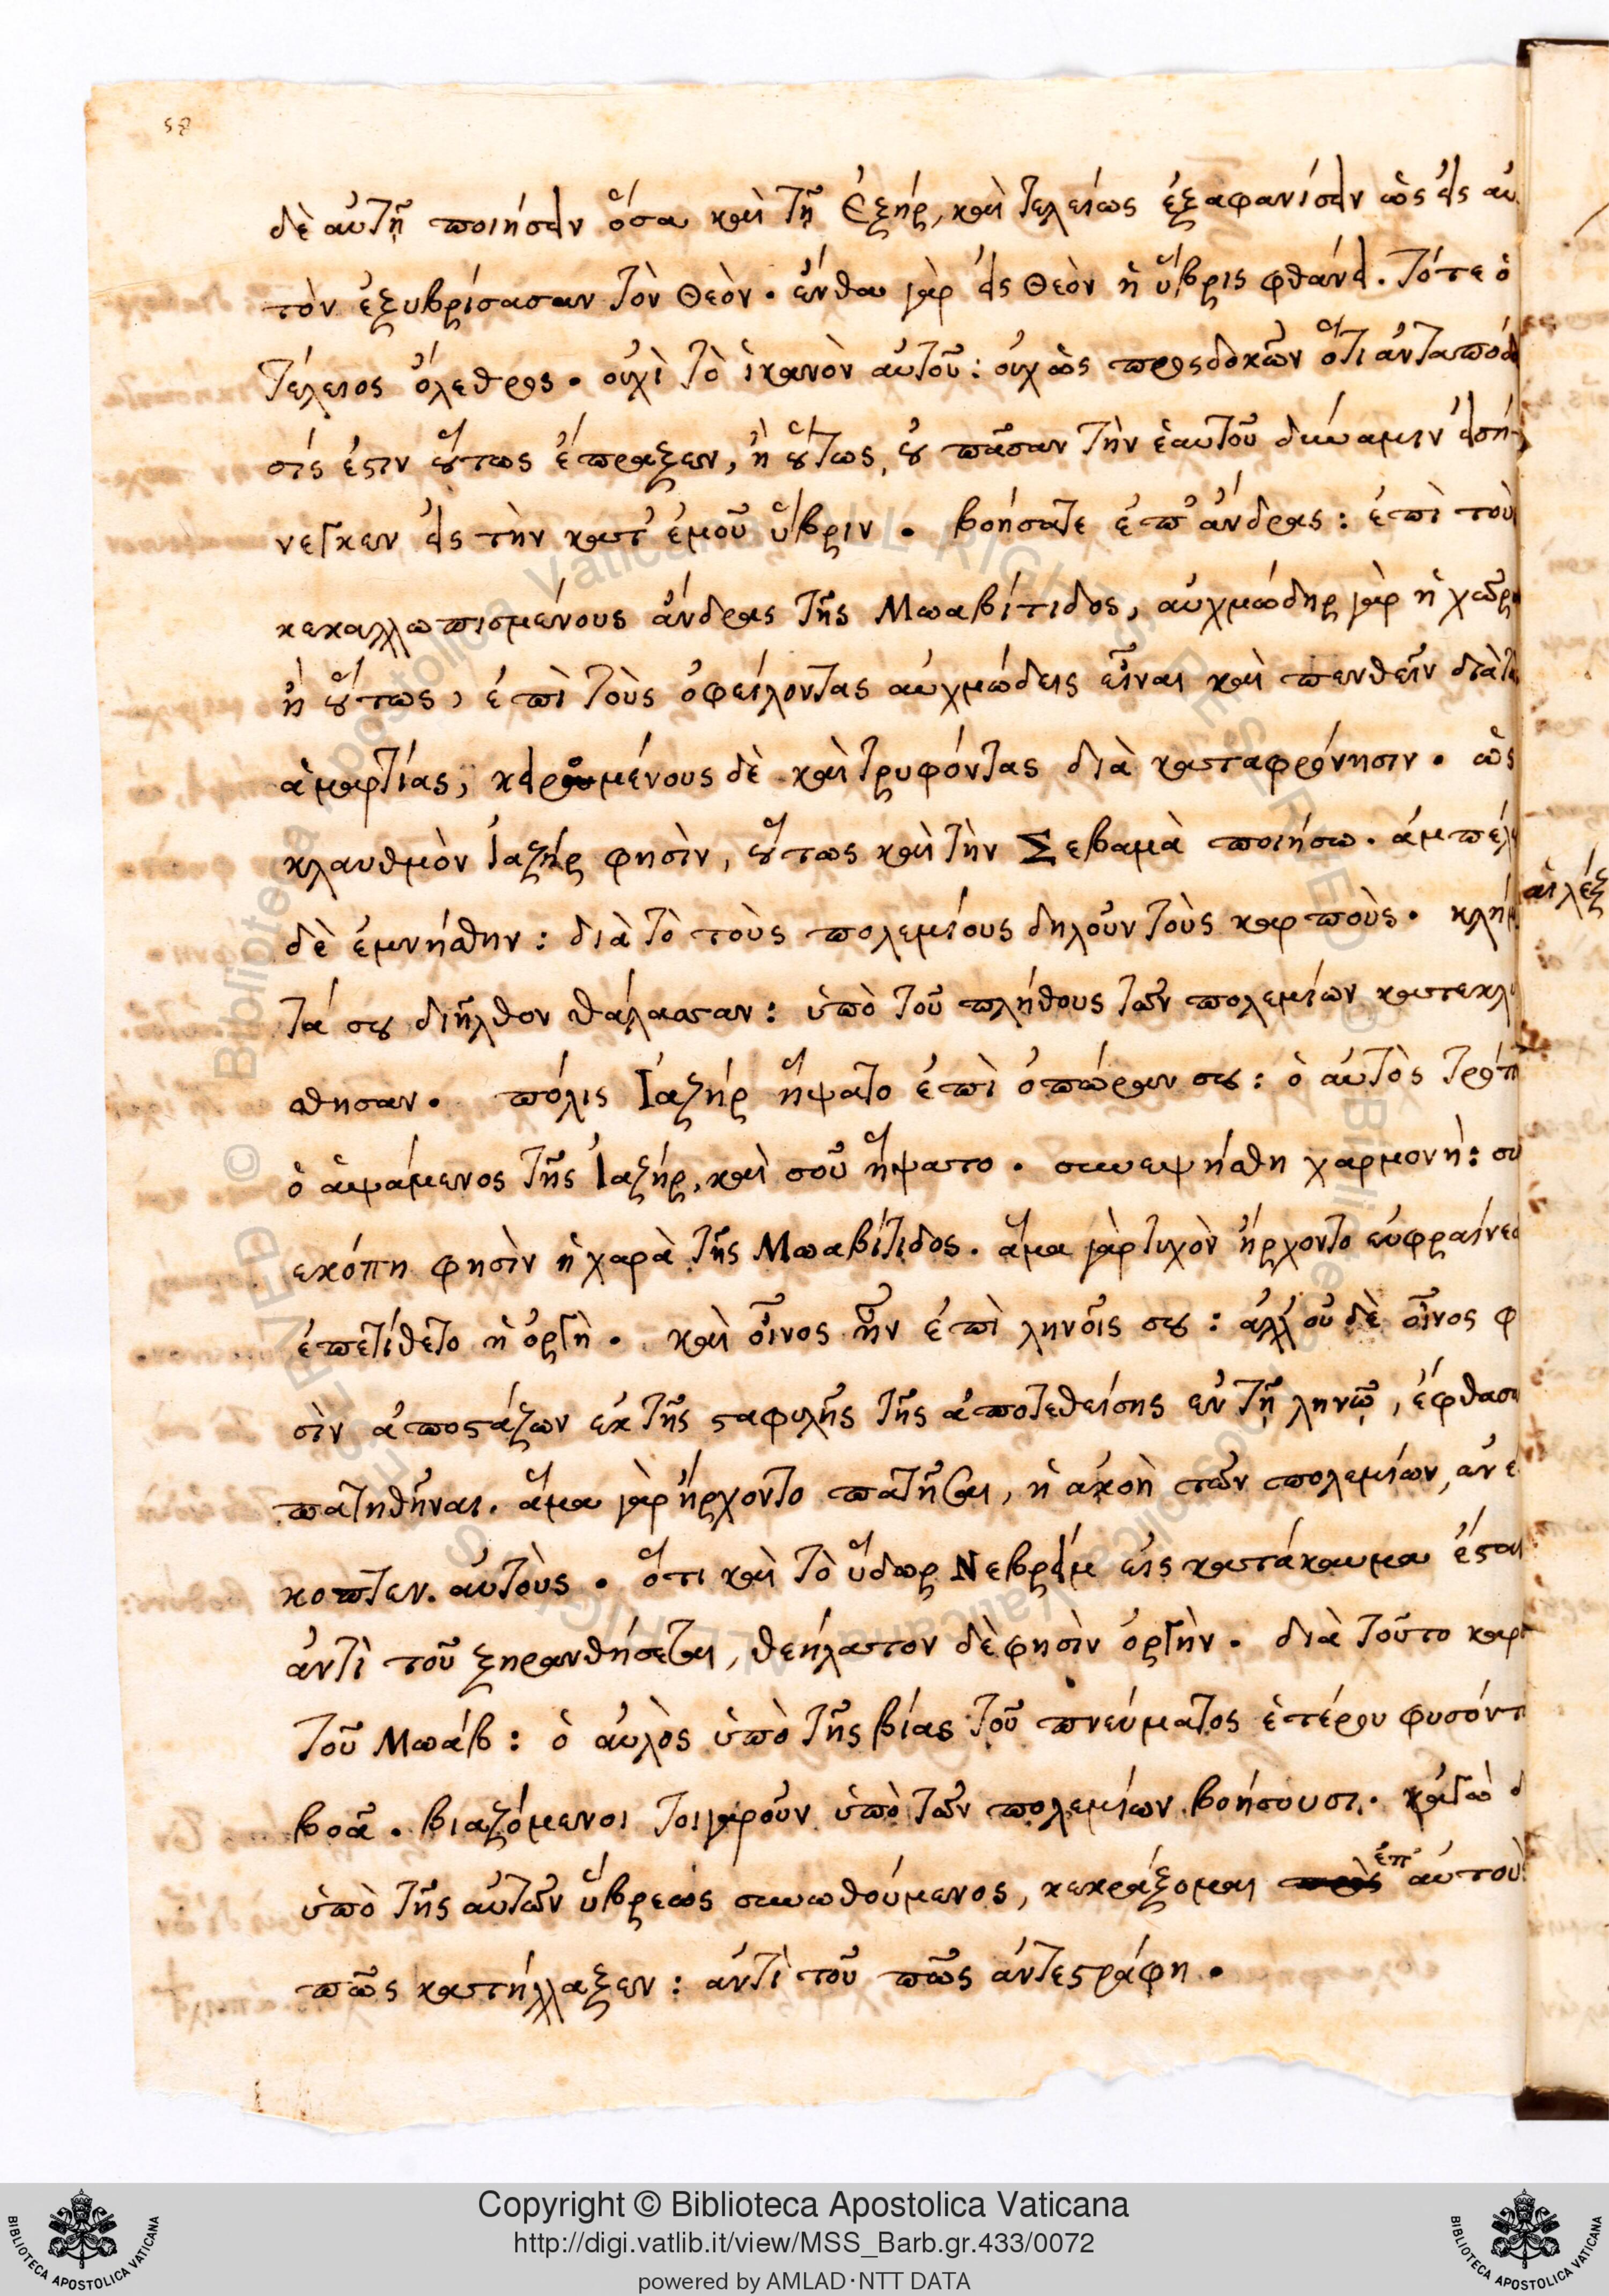 58
δὲ αὐτῇ ποιήσειν ὅσα καὶ τῇ Ἐξήρ, καὶ τελείως ἐξαφανίσειν ὡς εἰς αὐ
τὸν ἐξυβρίσασαν τὸν Θεὸν. ἔνθα γὰρ εἰς Θεὸν ἡ ὕβρις φθάνει. τότε ὁ
τέλειος ὄλεθρος. οὐχὶ τὸ ἱκανὸν αὐτοῦ: οὐχ ὡς προςδοκῶν ὅτι ἀνταπόδ
σίς ἐστιν οὕτως ἔπραξεν, ἢ οὕτως, οὐ πᾶσαν τὴν ἑαυτοῦ δύναμιν εἰσή-
νεγκεν εἰς τὴν κατ' ἐμοῦ ὕβριν. βοήσατε ἐπ' ἄνδρας: ἐπὶ τοὺ
κεκαλλωπισμένους ἄνδρας τῆς Μωαβίτιδος, αὐχμώδης γὰρ ἡ χώρ
ἢ οὕτως, ἐπὶ τοὺς ὀφείλοντας αὐχμώδεις εἶναι καὶ πενθεῖν διὰ τὰ
ἁμαρτίας, κειρομένους δὲ καὶ τρυφόντας διὰ καταφρόνησιν. ὡς
κλαυθμὸν Ἰαζήρ φησὶν, οὕτως καὶ τὴν Σεβαμὰ ποιήσω. ἀμπέλ
δὲ ἐμνήσθην: διὰ τὸ τοὺς πολεμίους δηλοῦν τοὺς καρποὺς. κλήμ
τά σου διῆλθον θάλασσαν: ὑπὸ τοῦ πλήθους τῶν πολεμίων κατεκλ
σθησαν. πόλις Ἰαζήρ ἥψατο ἐπὶ ὀπώραν σου: ὁ αὐτὸς τρόπ
ὁ ἁψάμενος τῆς Ἰαζήρ, καὶ σοῦ ἥψατο. συνεψήσθη χαρμονὴ: συ
εκόπη φησὶν ἡ χαρὰ τῆς Μωαβίτιδος. ἅμα γὰρ τυχὸν ἤρχοντο εὐφραίνεσ
ἐπετίθετο ἡ ὀργὴ. καὶ οἶνος ἦν ἐπὶ ληνοῖς σου: ἀλλ' οὐδὲ οἶνος φ
σὶν ἀποστάζων εκ τῆς σταφυλῆς τῆς ἀποτεθείσης εν τῇ ληνῷ, ἔφθασε
πατηθῆναι. ἅμα γὰρ ἤρχοντο πατῆσαι, ἡ ἀκοὴ τῶν πολεμίων, ἀνέ
κοπτεν αὐτοὺς. ὅτι καὶ τὸ ὕδωρ Νεβρείμ εἰς κατάκαυμα ἔσται
ἀντὶ τοῦ ξηρανθήσεται, θεήλατον δὲ φησὶν ὀργὴν. διὰ τοῦτο καρ
τοῦ Μωάβ: ὁ αὐλὸς ὑπὸ τῆς βίας τοῦ πνεύματος ἑτέρου φυσόντ
βοᾷ. βιαζόμενοι τοιγαροῦν ὑπὸ τῶν πολεμίων βοήσουσι. κἀγὼ δ
ὑπὸ τῆς αὐτῶν ὕβρεως συνωθούμενος, κεκράξομαι ἐπ' αὐτοὺ
πῶς κατήλλαξεν: ἀντὶ τοῦ πῶς ἀντεστράφη.
αἱ λέξ
Copyright © Biblioteca Apostolica Vaticana
http://digi.vatlib.it/view/MSS_Barb.gr.433/0072
powered by AMLAD·NTT DATA
BIBLIOTECA APOSTOLICA VATICANA
BIBLIOTECA APOSTOLICA VATICANA